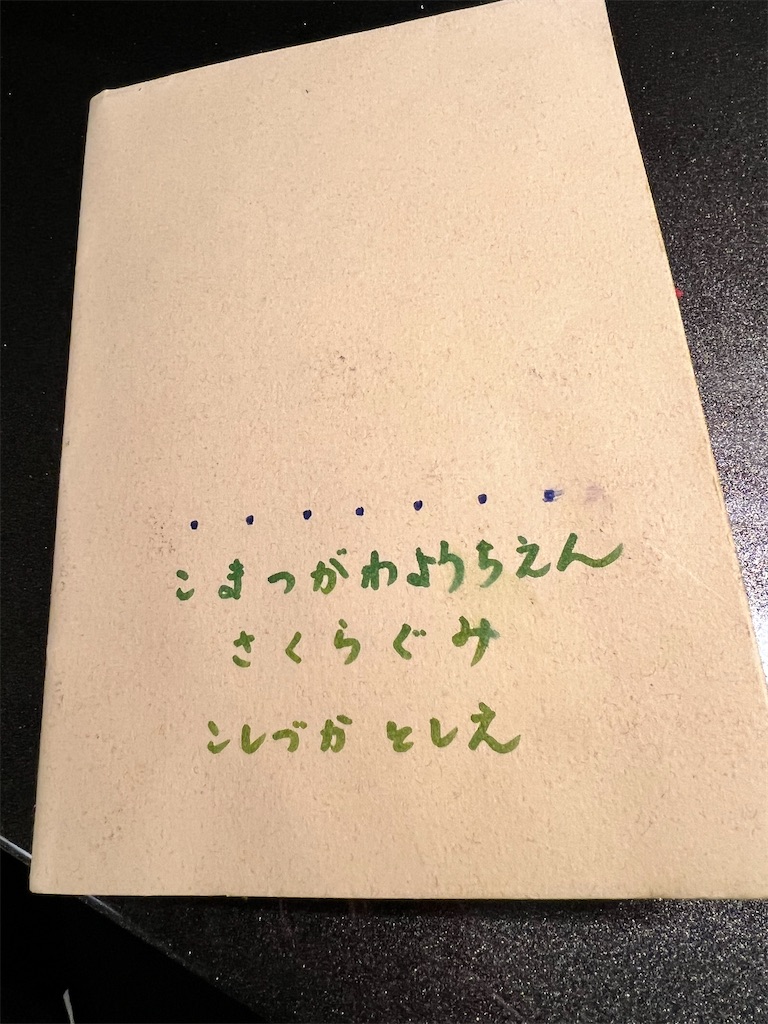 こまつがわようちえん
さくらぐみ
こしづか としえ